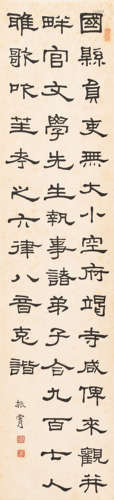 國縣員吏無大小空府竭寺咸俾來觀并
畔官文學先生執事諸弟子合九百七人
雅歌吹笙考之六律八音克諧
振霄